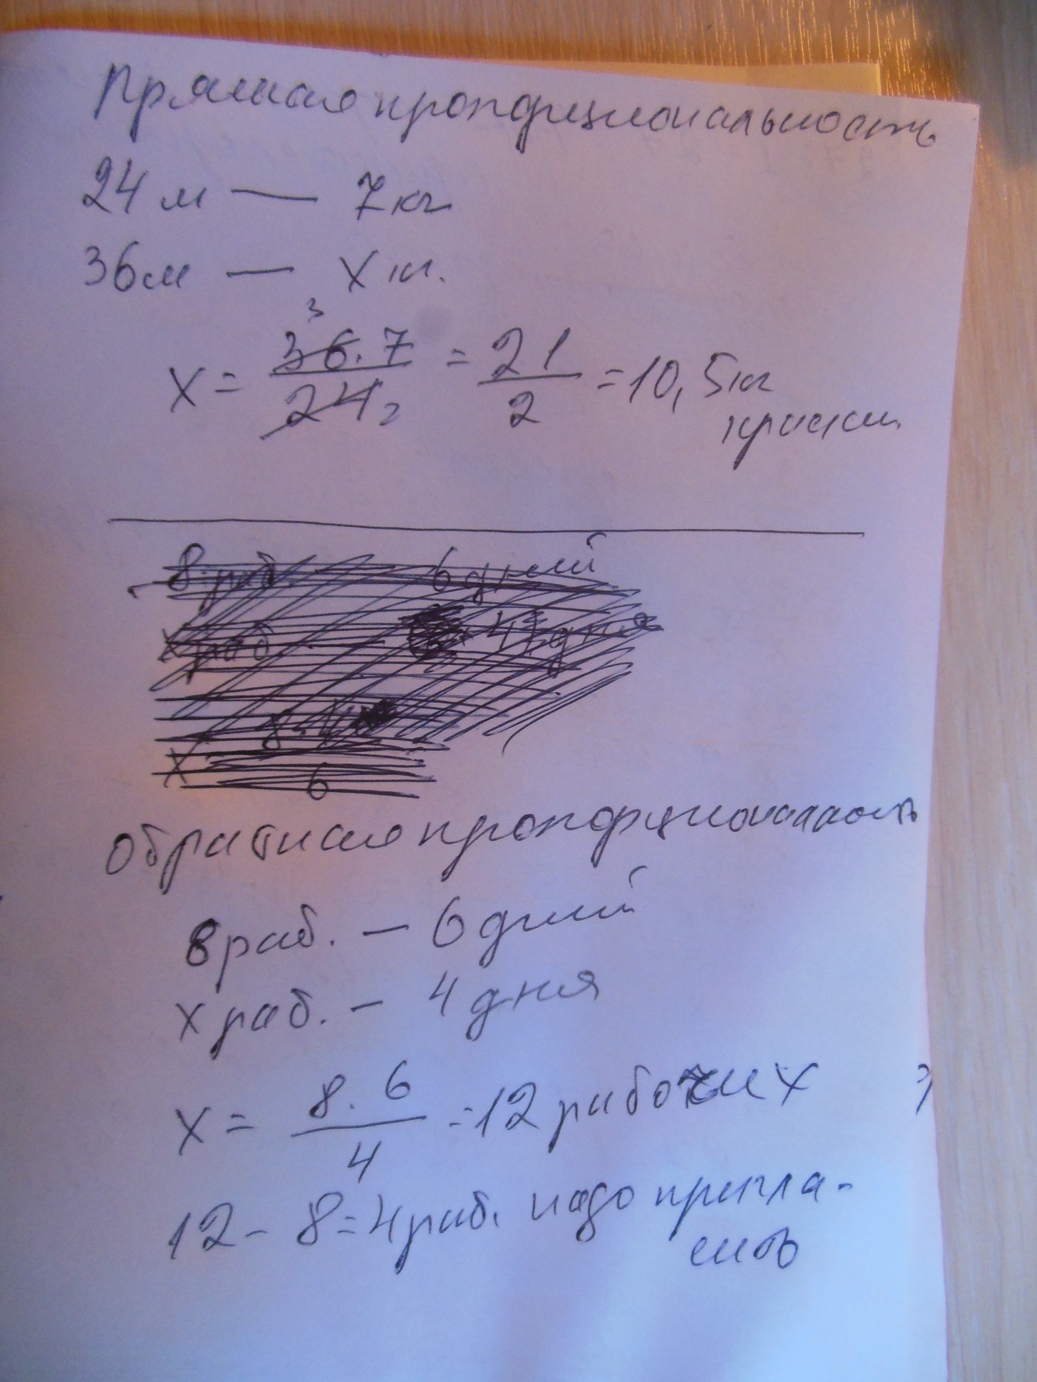 Прямая пропорциональность
24 м — 7 кг
36 м — х кг.
3
х = 36·7 / 24 2 = 21 / 2 = 10,5 кг
краски
8 раб. 6 дней
х раб 4 дня
х 8· 6
Обратная пропорциональность
8 раб. – 6 дней
х раб. – 4 дня
х = 8·6 / 4 = 12 рабочих
12 - 8 = 4 раб. надо пригла-
сить